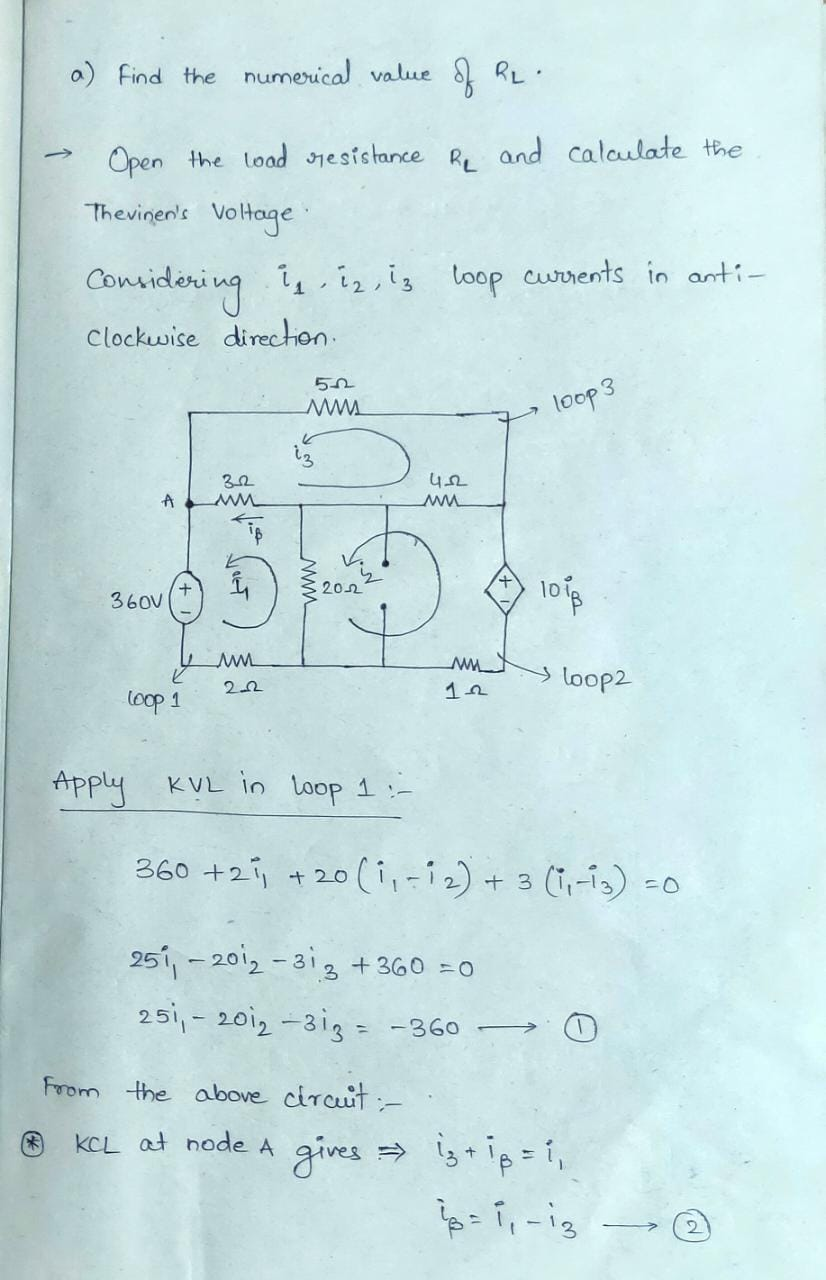 a) Find the numerical value of RL.
→ Open the load resistance RL and calculate the
Thevinen's Voltage.
Considering i1, i2, i3 loop currents in anti-
Clockwise direction.
5Ω
loop 3
i3
3Ω
4Ω
A
iβ
360V
+
-
i1
20Ω
i2
+
-
10iβ
loop 1
2Ω
1Ω
loop2
Apply KVL in loop 1 :-
360 + 2i1 + 20(i1-i2) + 3(i1-i3) = 0
25i1 - 20i2 - 3i3 + 360 = 0
25i1 - 20i2 - 3i3 = -360 → ①
From the above circuit :-
⊛ KCL at node A gives ⇒ i3 + iβ = i1
iβ = i1 - i3 → ②